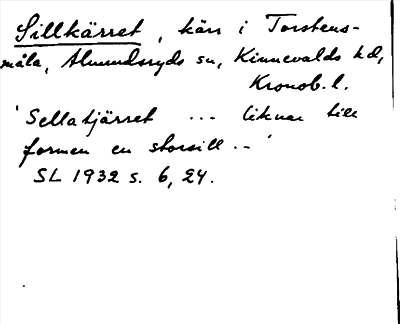 Sillkärret, kärr i Torstens-
måla, Almundsryds sn, Kinnevalds hd,
Kronob. l.
'Sellatjärret ... liknar till
formen en storsill ..'
SL 1932 s. 6, 24.